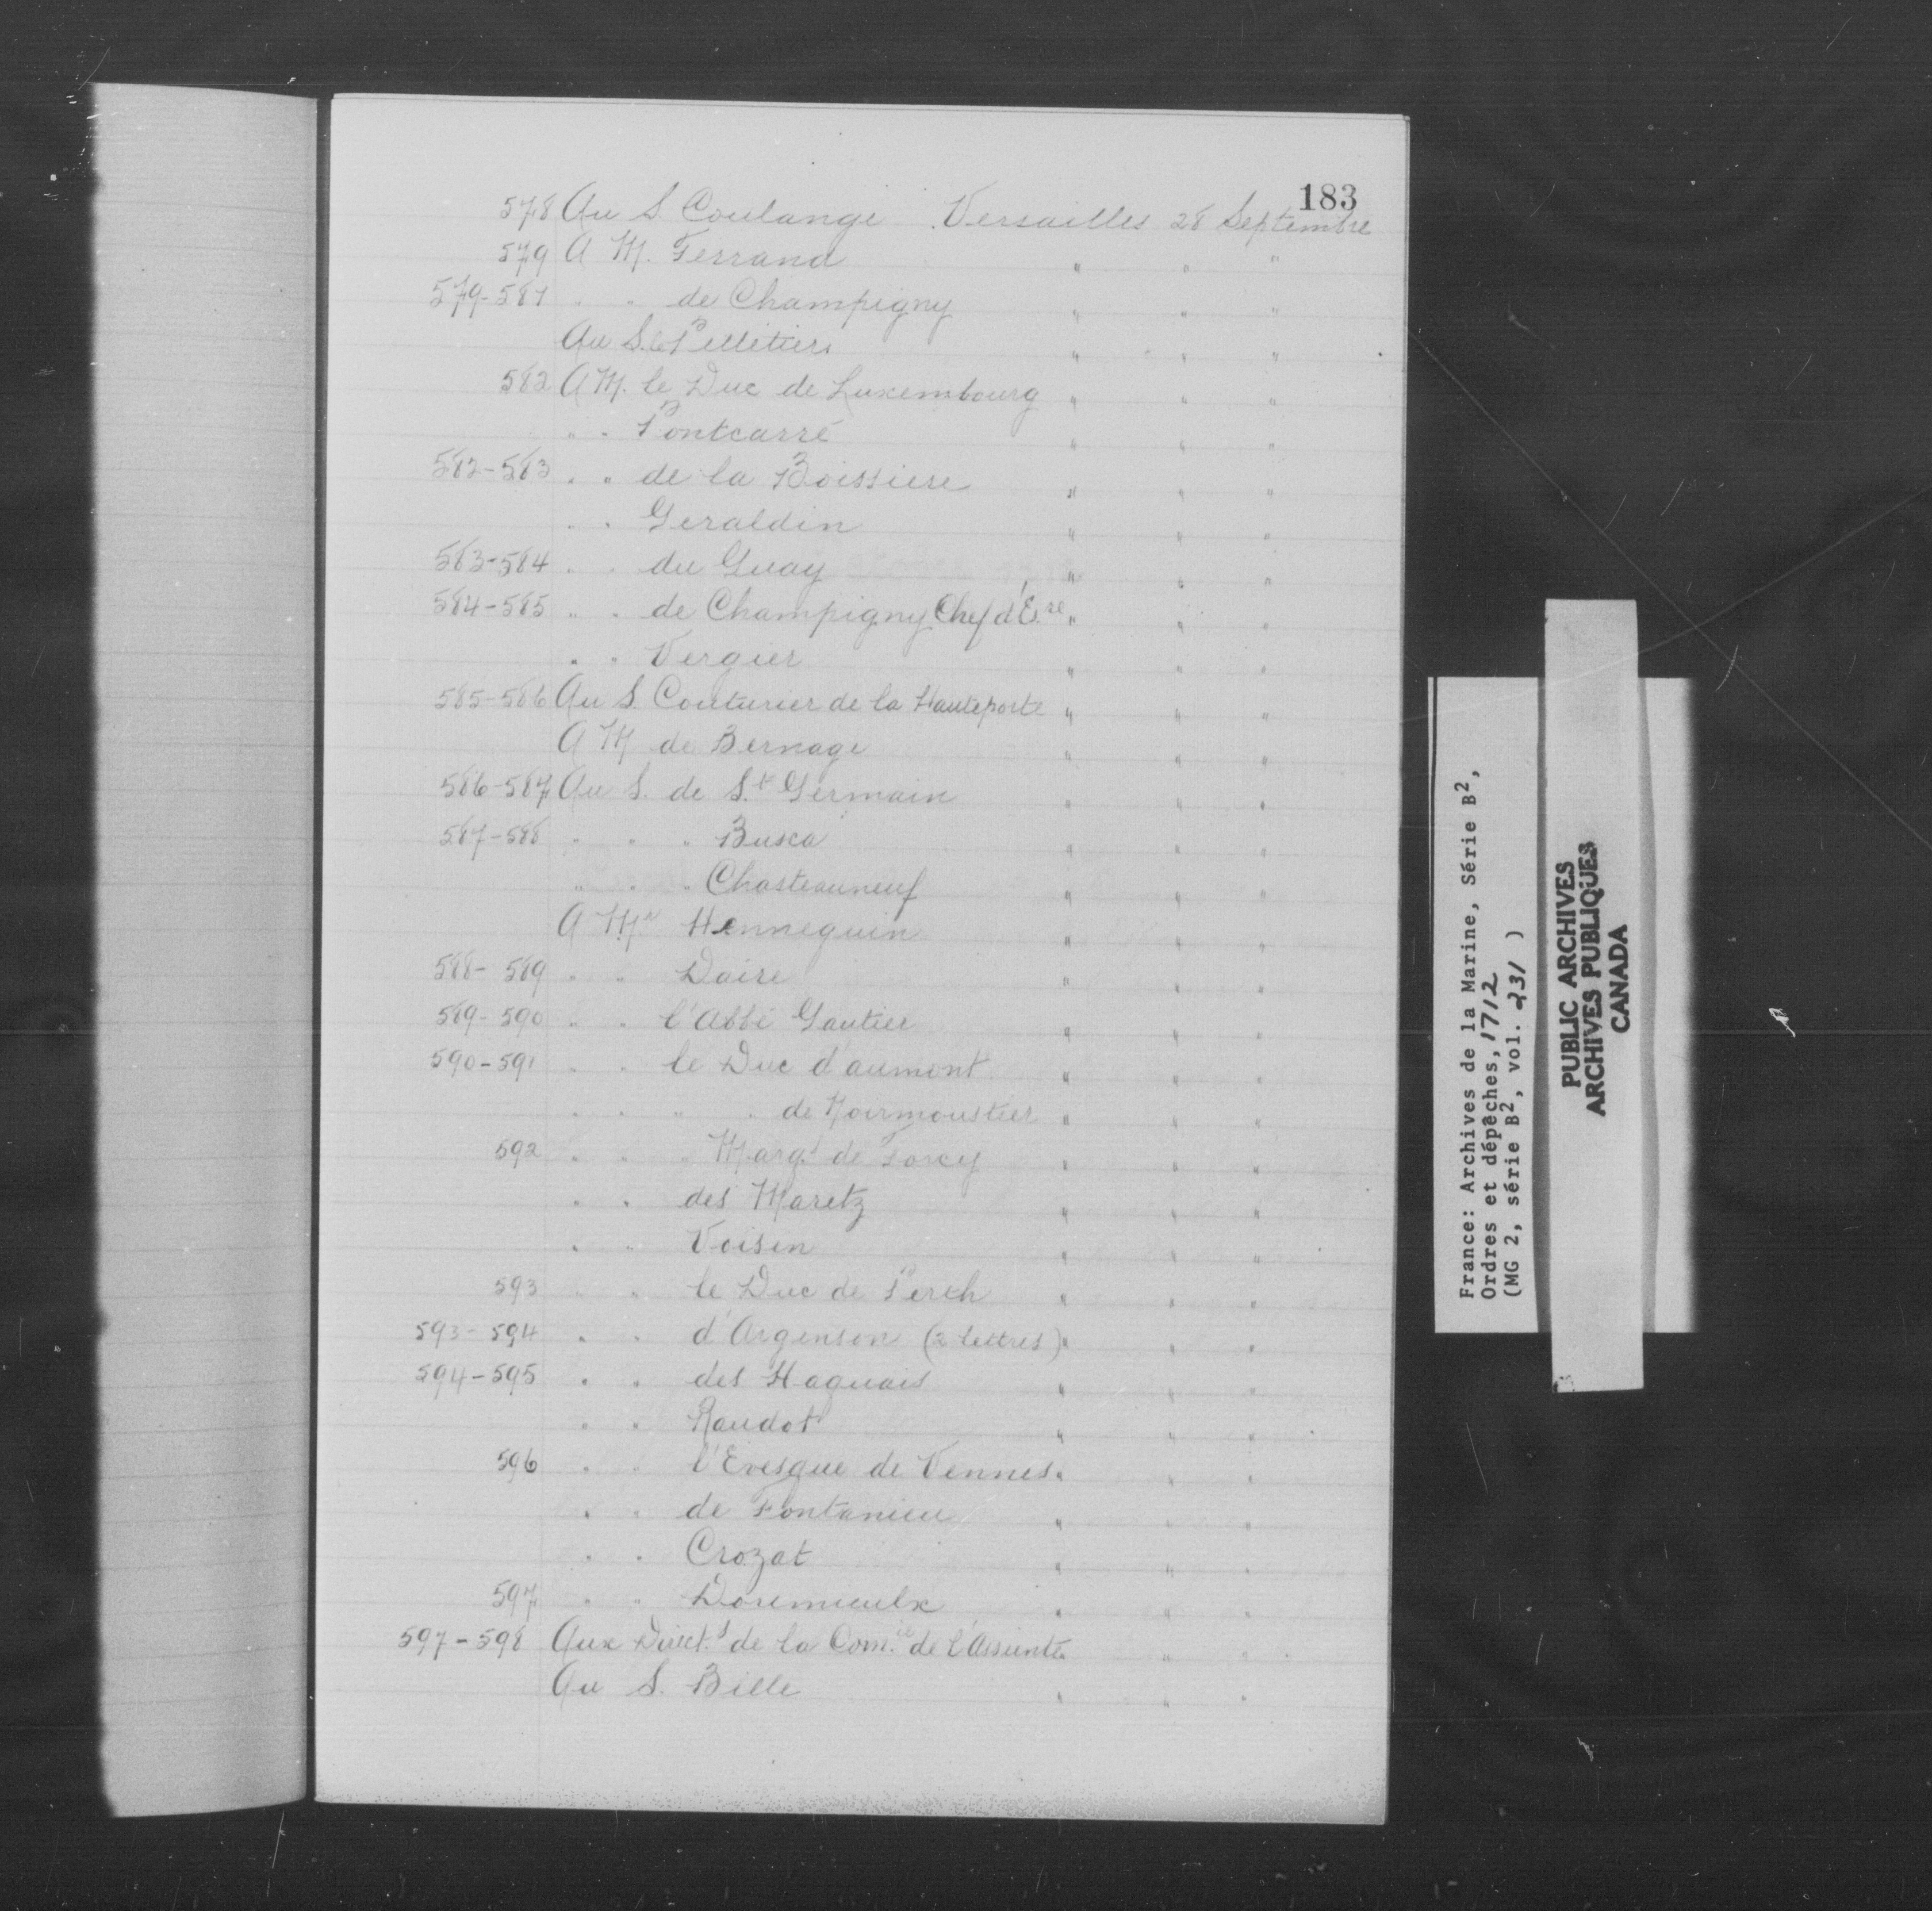 183
578 Au S. Coulange Versailles 28 Septembre
579 A M. Ferrand " " "
579-581 " " de Champigny " " "
Au S. le Pelletier " " "
582 A M. le Duc de Luxembourg " " "
" " Pontcarré " " "
582-583 " " de la Boissiere " " "
" " Geraldin " " "
583-584 " " du Guay " " "
584-585 " " de Champigny Chef d'E.re " " "
" " Vergier " " "
585-586 Au S. Couturier de la Hauteporte " " "
A M de Bernage " " "
586-587 Au S. de S.t Germain " " "
587-588 " " " Busca " " "
" " " Chasteauneuf " " "
A Mr Hennequin " " "
588-589 " " Daire " " "
589-590 " " l'Abbé Gautier " " "
590-591 " " le Duc d'aumont " " "
" " " " de Noirmoustier " " "
592 " " " Marq.s de Torcy " " "
" " des Maretz " " "
" " Voisin " " "
593 " " le Duc de Perth " " "
593-594 " " d'Argenson (2 lettres) " " "
594-595 " " des Haguais " " "
" " Raudot " " "
596 " " l'Evesque de Vennes " " "
" " de Fontanieu " " "
" " Crozat " " "
597 " " Doremieulx " " "
597-598 Aux Direct.s de la Com.ie de l'Assiente " " "
Au S. Bille " " "
France: Archives de la Marine, Série B2,
Ordres et dépêches, 1712
(MG 2, série B2, vol. 231 )
PUBLIC ARCHIVES
ARCHIVES PUBLIQUES
CANADA